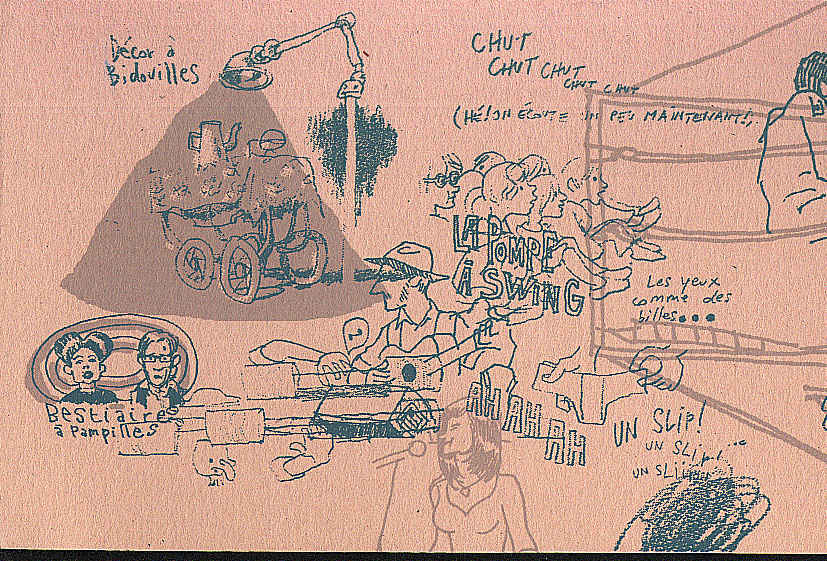 Décor à
Bidouilles
CHUT
CHUT CHUT
CHUT CHUT
(HÉ! ON ÉCOUTE UN PEU MAINTENANT!)
LA POMPE
À SWING
Les yeux
comme des
billes...
Bestiaire
à Pampilles
AH AH AH AH
UN SLIP!
UN SLIP!
UN SLIP